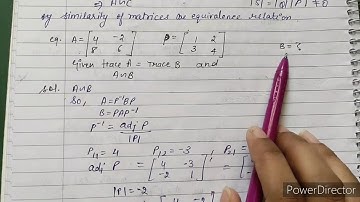 ⇒ A∼C |S| = |Q| |P| ≠ 0
by similarity of matrices an equivalence relation
eg. A = [4 -2
8 6] P = [1 2
3 4] B = ?
Given trace A = trace B and
A∼B
sol. A∼B
So, A = P⁻¹BP
B = PAP⁻¹
P⁻¹ = adj P
|P|
P₁₁ = 4 P₁₂ = -3 P₂₁ =
adj P = [4 -3
-2 1]' = [
|P| = -2
PowerDirector